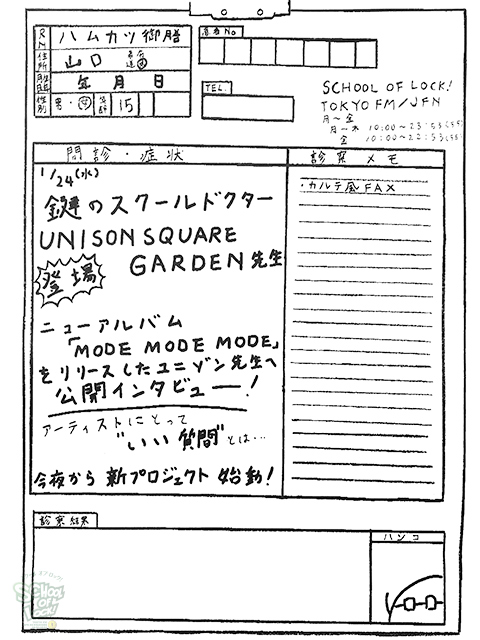 RN ハムカツ御膳
住所 山口
年 月 日
性別 男・女 年齢 15
患者No
TEL.
SCHOOL OF LOCK!
TOKYO FM/JFN
月～金
月－木 10:00～23:55
金 10:00～22:55
問診・症状
診察メモ
1/24(水)
・カルテ風FAX
鍵のスクールドクター
UNISON SQUARE
GARDEN先生
登場
ニューアルバム
「MODE MODE MODE」
をリリースしたユニゾン先生へ
公開インタビュー！
アーティストにとって
"いい質問"とは…
今夜から 新プロジェクト 始動！
診察結果
ハンコ
School
of
Lock!